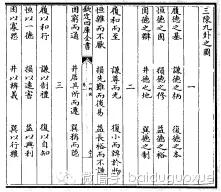 三陳九卦之圖
一
履德之基 謙德之柄 復德之本
恒德之固 損德之修 益德之裕
困德之辨 井德之地 巽德之制
二
履和而至 謙尊而光 復小而辨於物
恒雜而不厭 損先難而後易 益長裕而不設
困窮而通 井居其所而遷 巽稱而隱
欽定四庫全書
三
履以和行 謙以制禮 復以自知
恒以一德 損以遠害 益以興利
困以寡怨 井以辨義 巽以行權